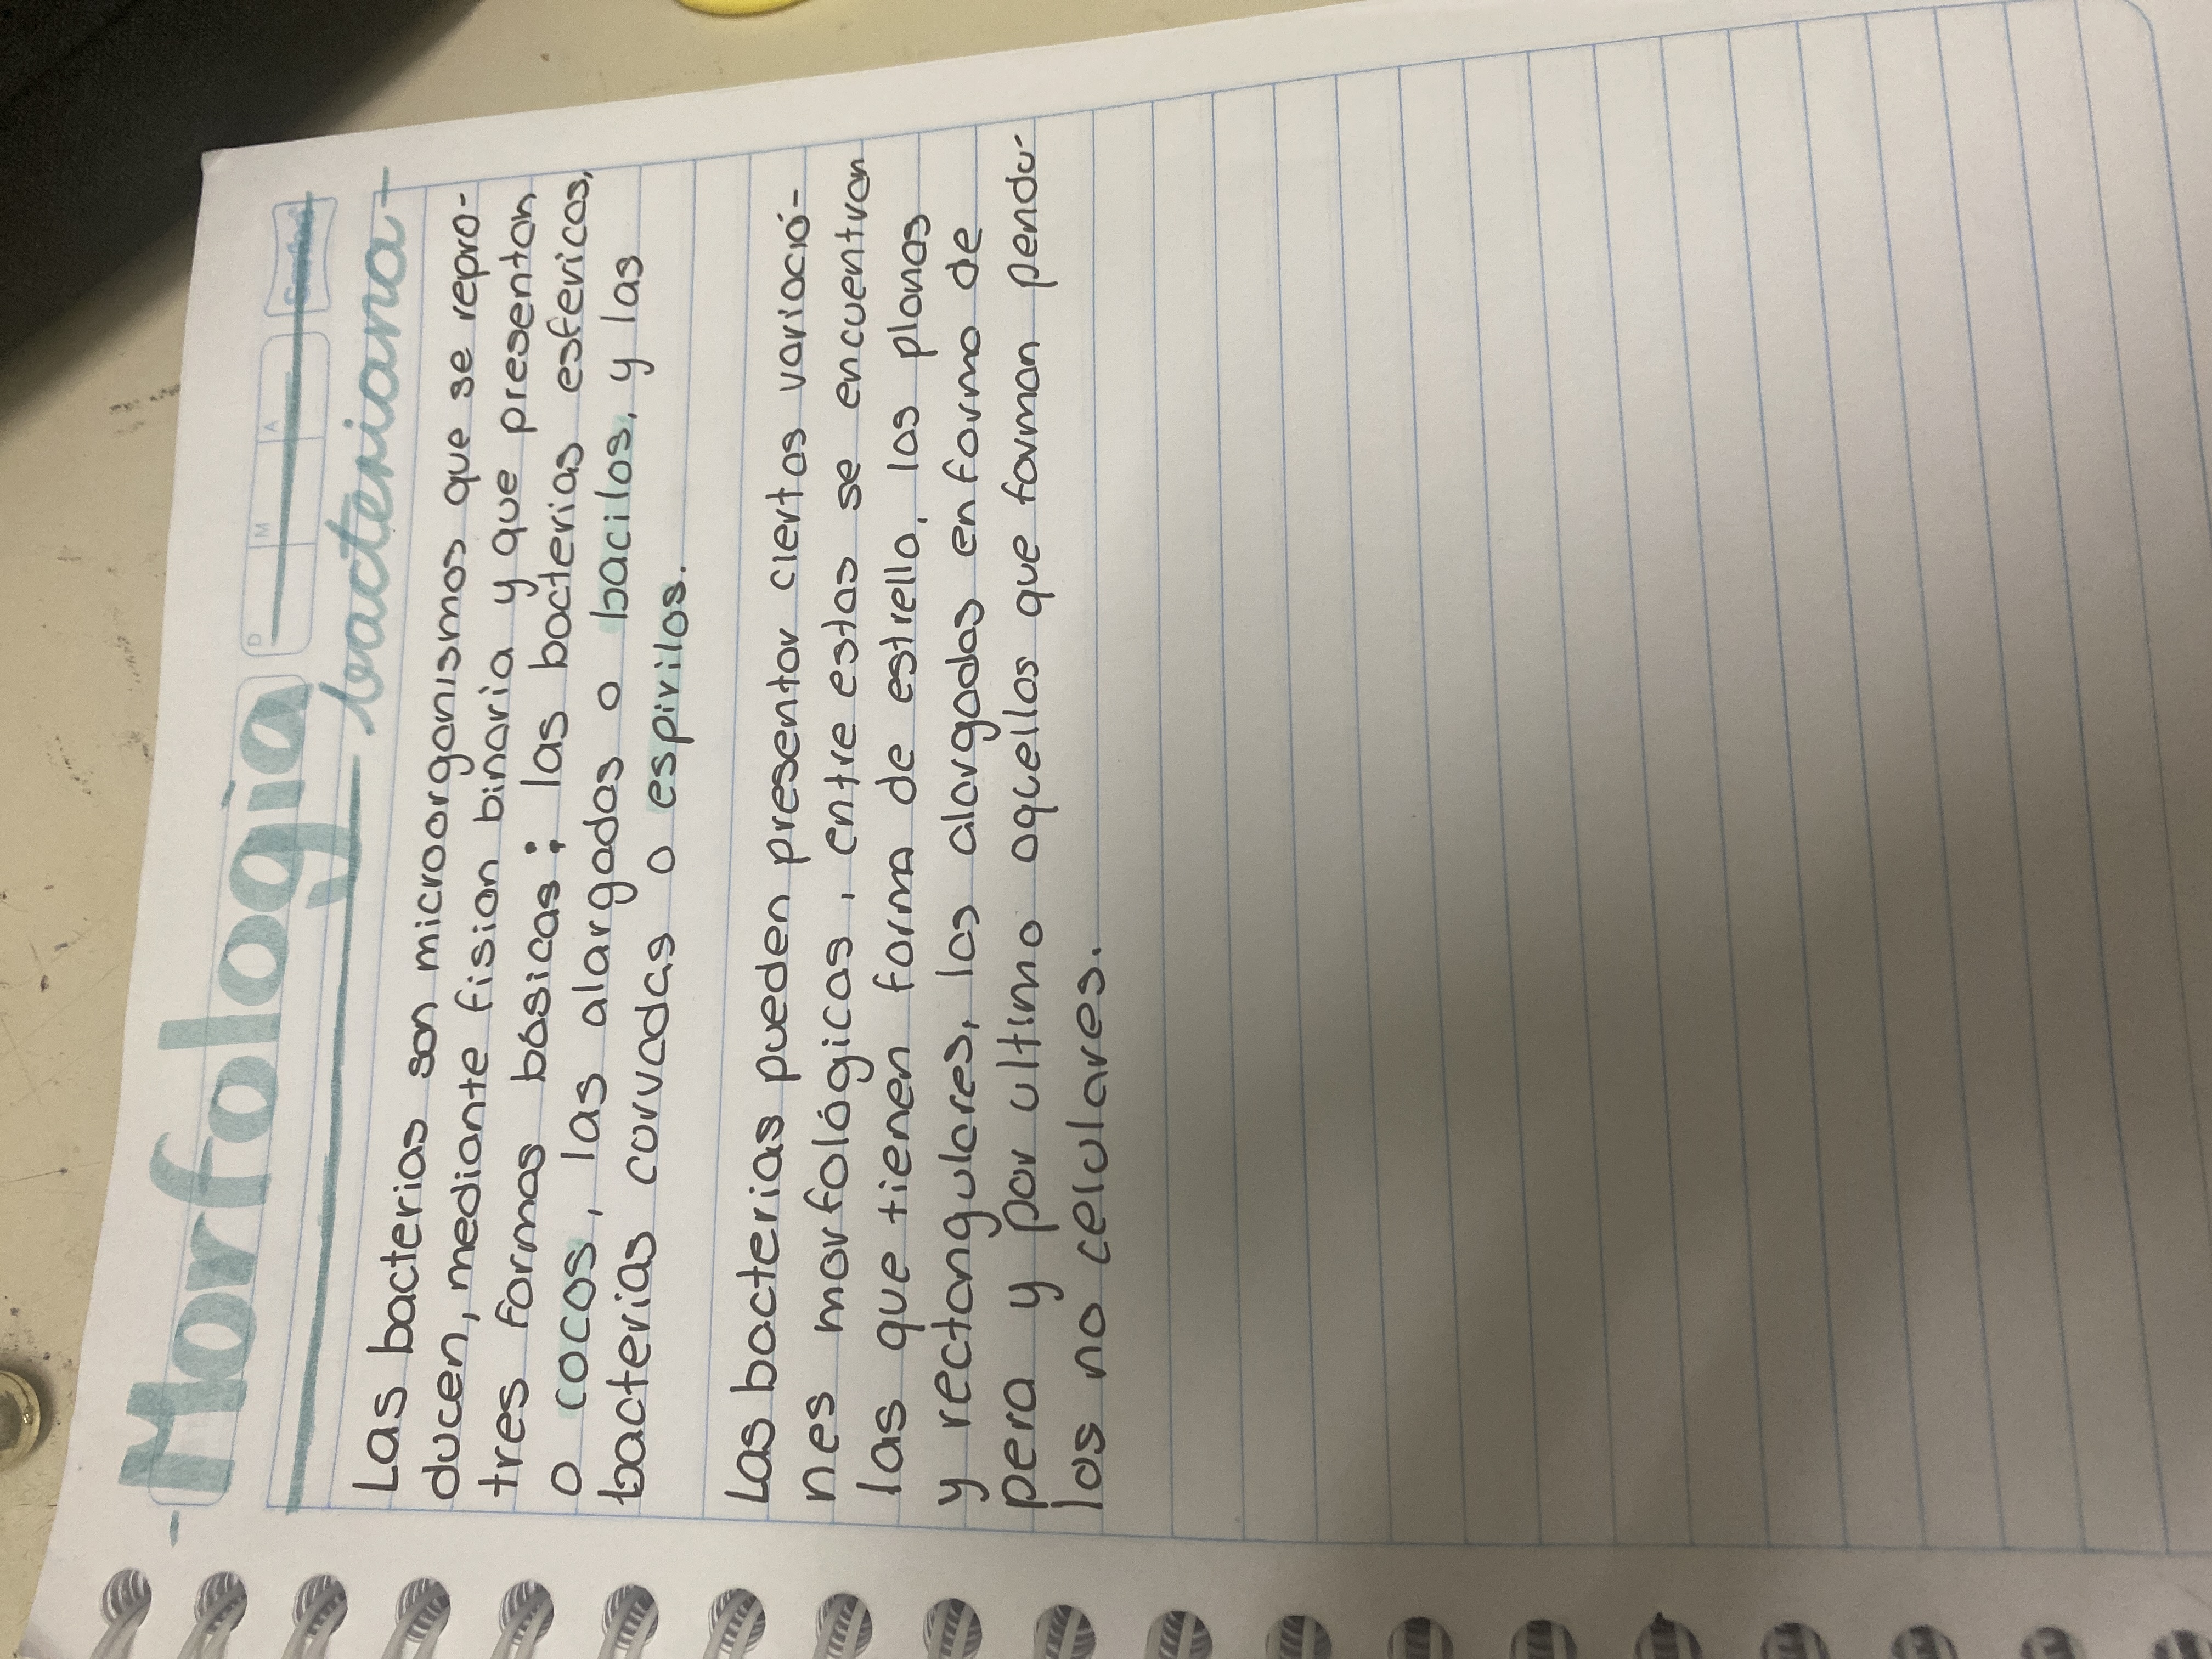 - Morfologia
bacteriana -
D M A
Las bacterias son microorganismos que se repro-
ducen, mediante fision binaria y que presentan
tres formas básicas: las bacterias esfericas,
o cocos, las alargadas o bacilos, y las
bacterias curvadas o espirilos.
Las bacterias pueden presentar ciertas variació-
nes morfológicas, entre estas se encuentran
las que tienen forma de estrella, las planas
y rectangulares, las alargadas en forma de
pera y por ultimo aquellas que forman pendu-
los no celulares.